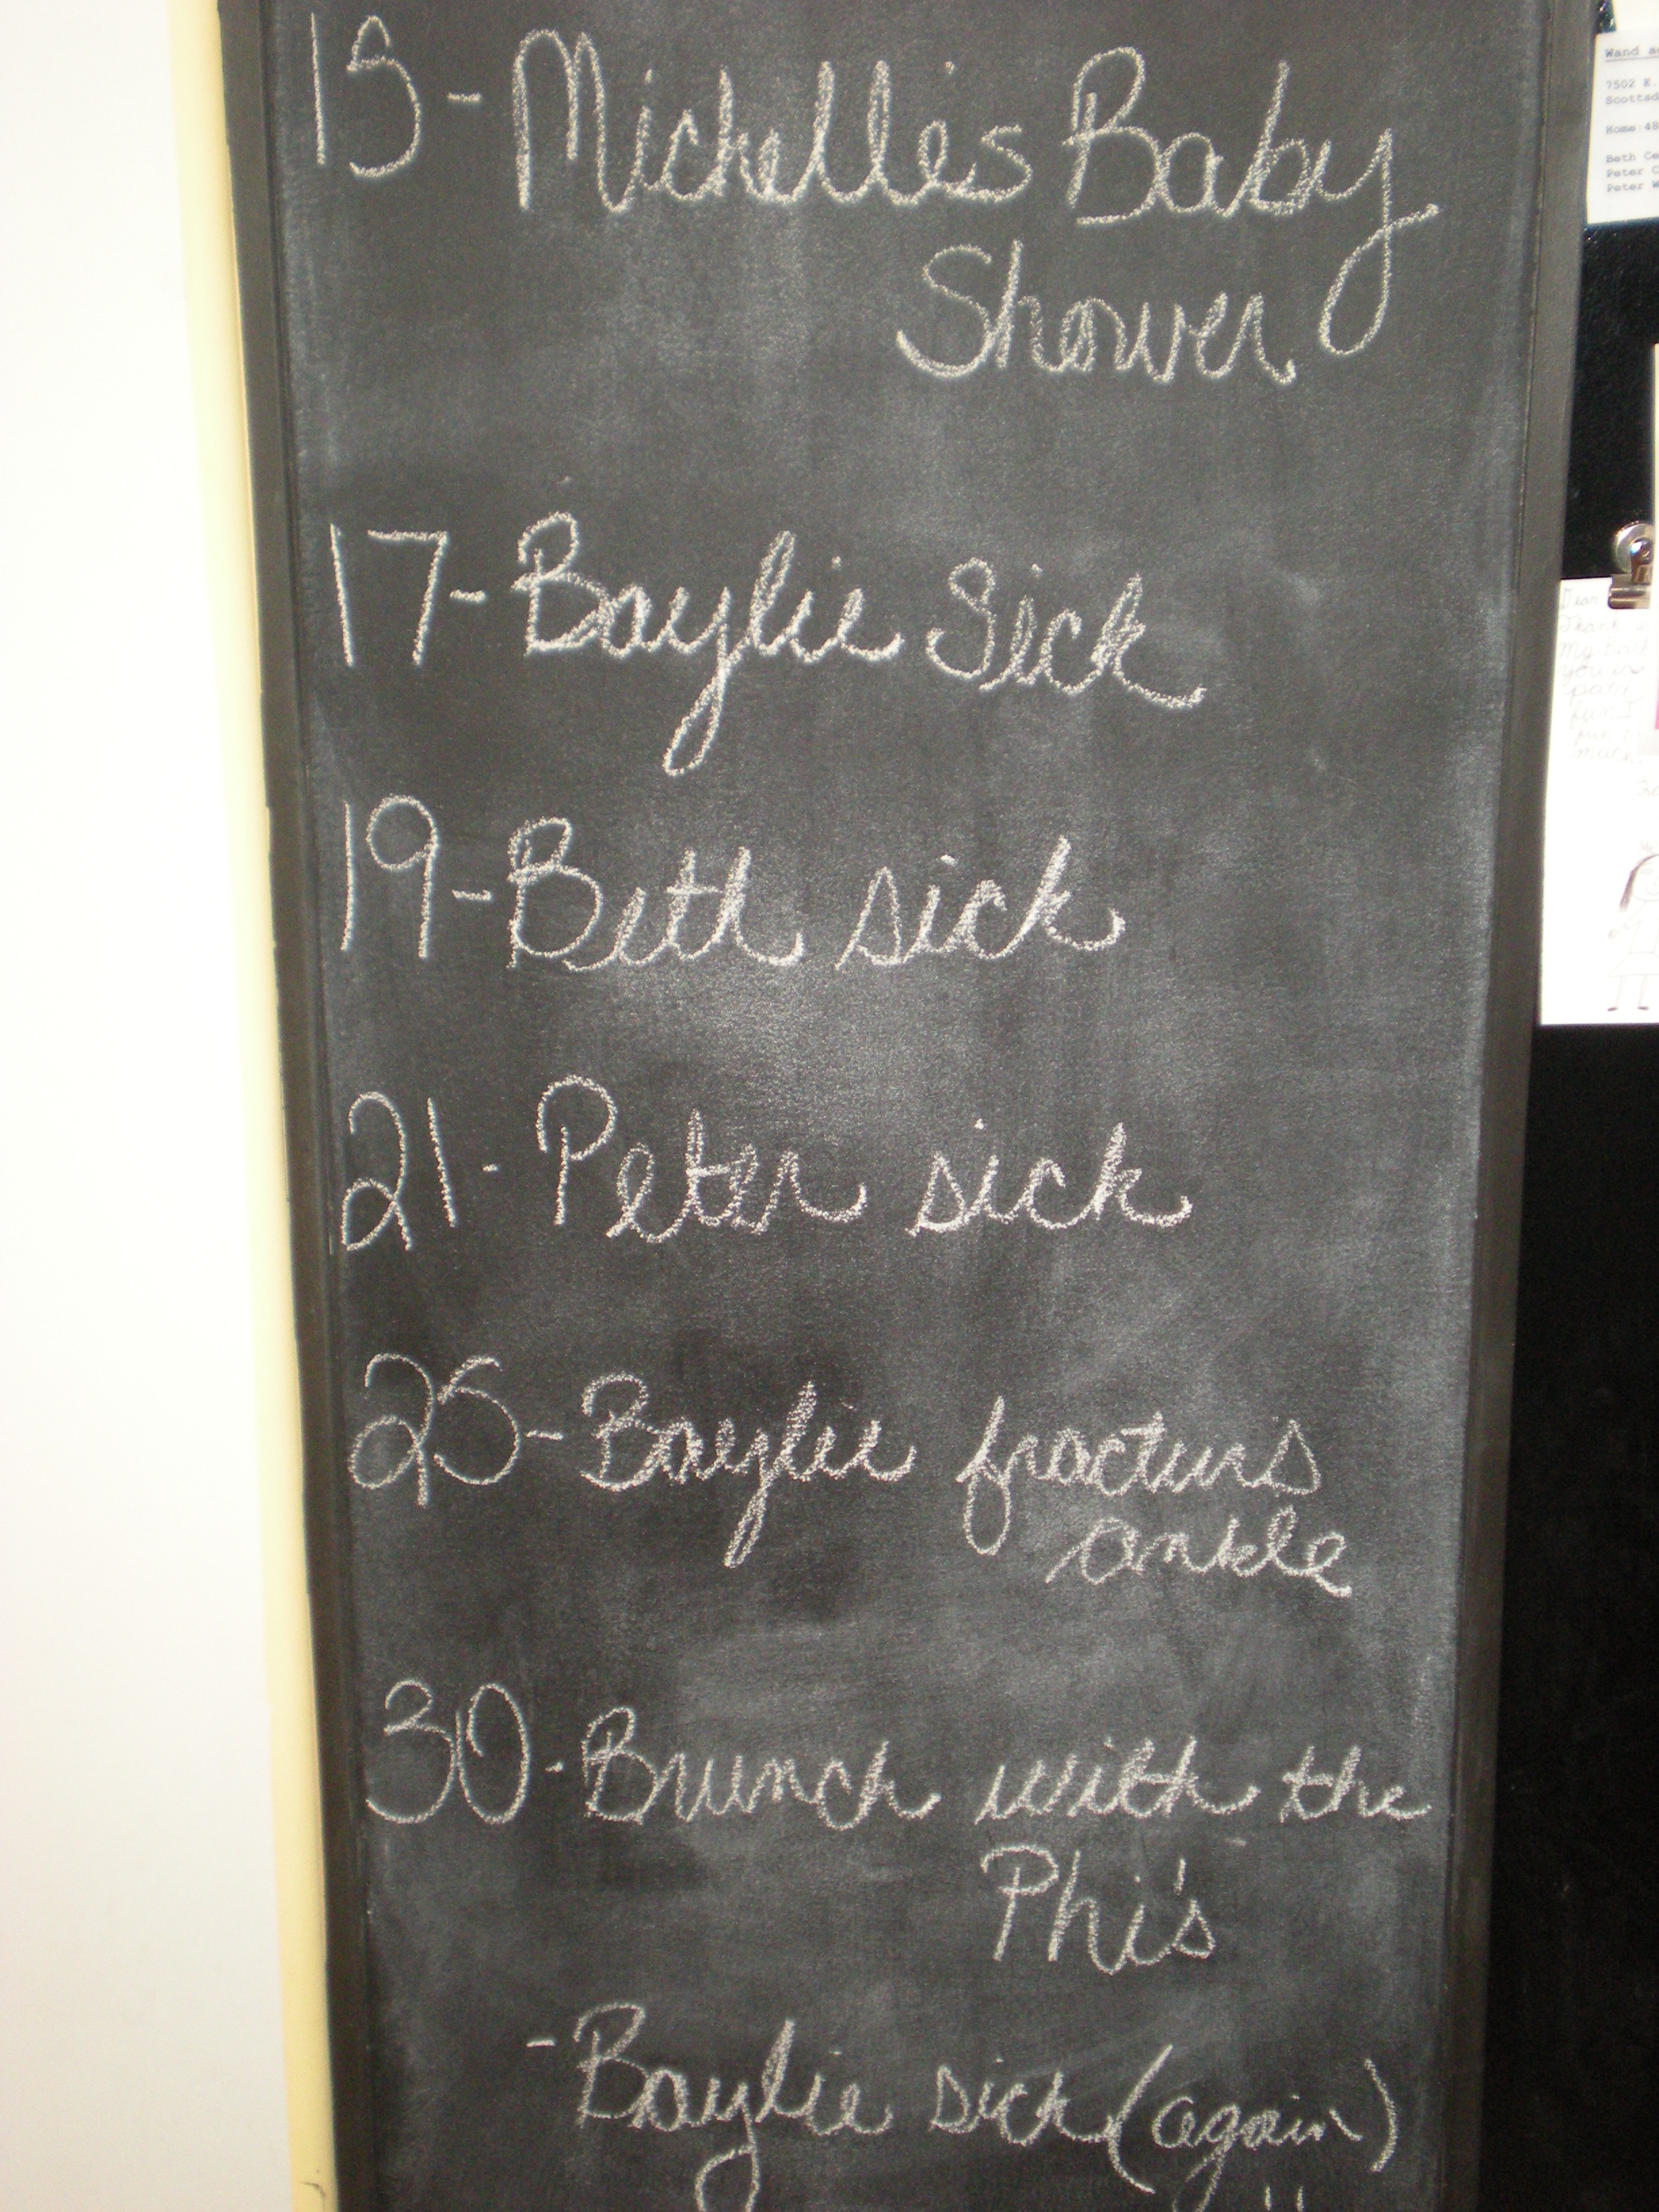 15-Michelle's Baby
Shower
17-Baylie Sick
19-Beth sick
21-Peter sick
25-Baylie fracturs
ankle
30-Brunch with the
Phi's
-Baylie sick (again)
Wand
7502 E.
Scottsd
Home:48
Beth Ce
Peter C
Peter W
Dear
Thank
My
your
party
fun I
much